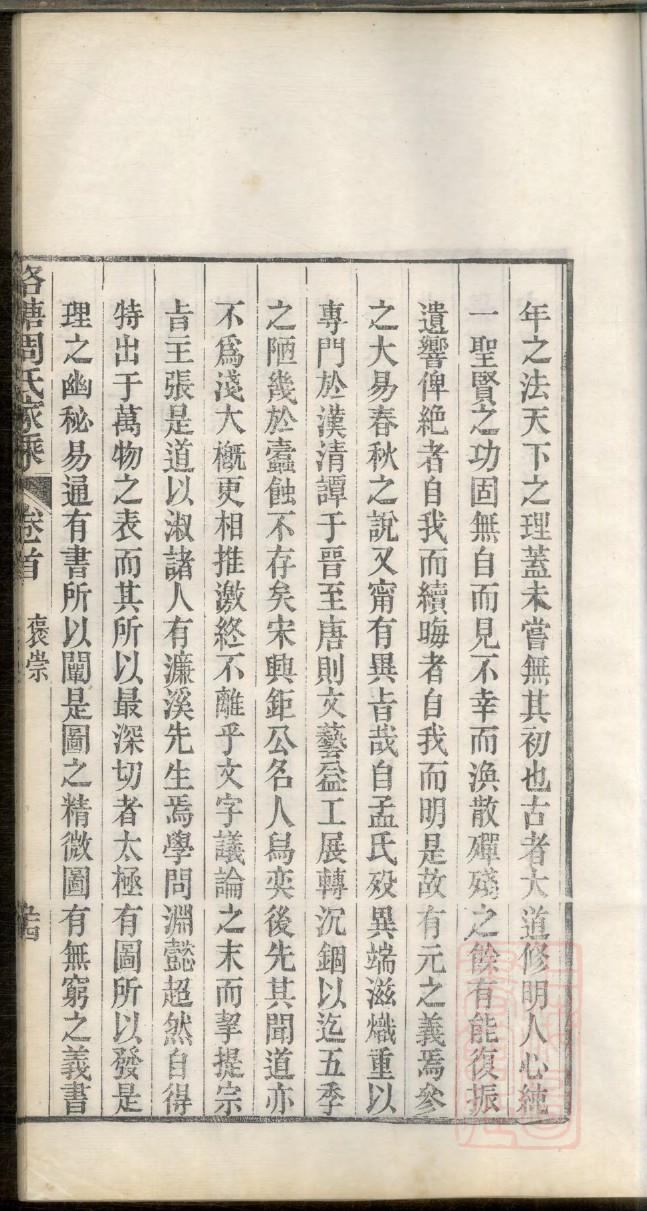 年之法天下之理蓋未嘗無其初也古者大道修明人心純
一聖賢之功固無自而見不幸而渙散殫殘之餘有能復振
遺響俾絶者自我而續晦者自我而明是故有元之義焉參
之大易春秋之說又甯有異㫖哉自孟氏歿異端滋熾重以
專門於漢清譚于晉至唐則文藝益工展轉沉錮以迄五季
之陋幾於蠹蝕不存矣宋興鉅公名人舄奕後先其聞道亦
不爲淺大概更相推激終不離乎文字議論之末而挈提宗
㫖主張是道以淑諸人有濂溪先生焉學問淵懿超然自得
特出于萬物之表而其所以最深切者太極有圖所以發是
理之幽秘易通有書所以闡是圖之精微圖有無窮之義書
周氏家乘 卷首 褒崇